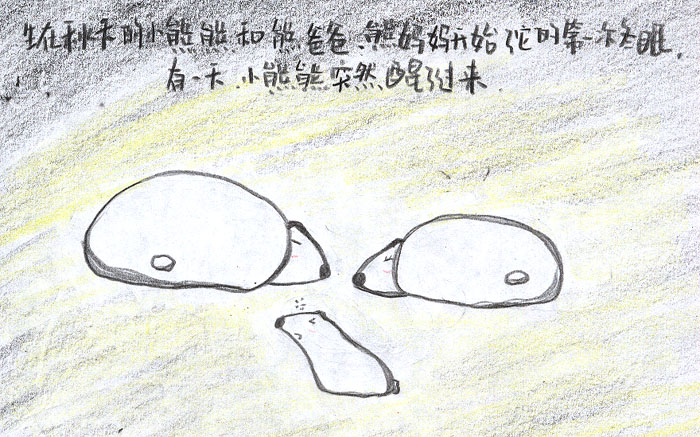 生在秋末的小熊熊和熊爸爸、熊妈妈开始了它的第一次冬眠,
有一天,小熊熊突然醒了过来.